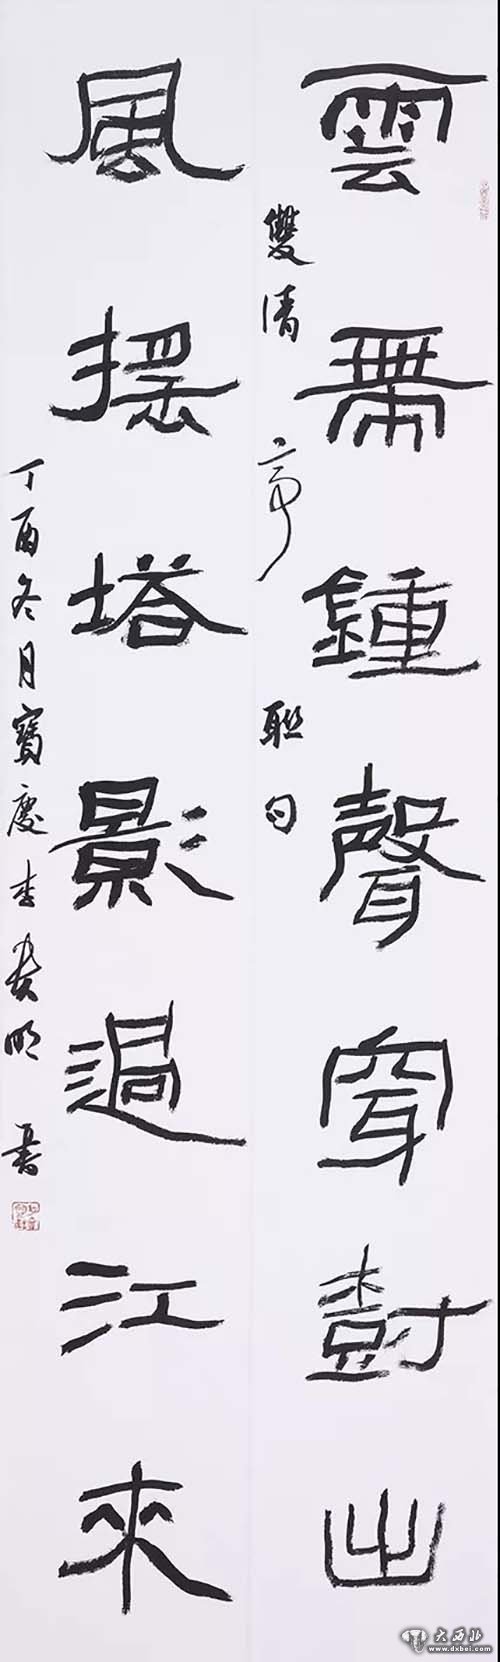 雲帶鍾聲穿樹出
雙清亭聯句
風搖塔影過江來
丁酉冬月寶慶李明書
大西北
www.dxbei.com